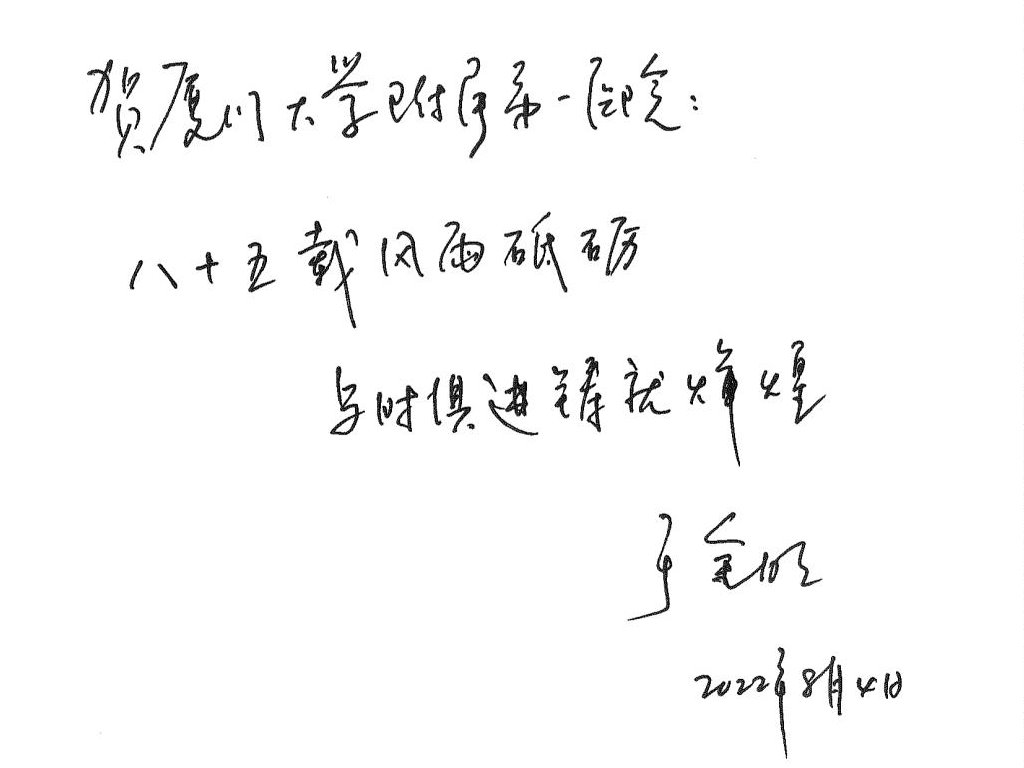 贺厦门大学附属第一医院:
八十五载风雨砥砺
与时俱进铸就辉煌
于金明
2022年8月4日